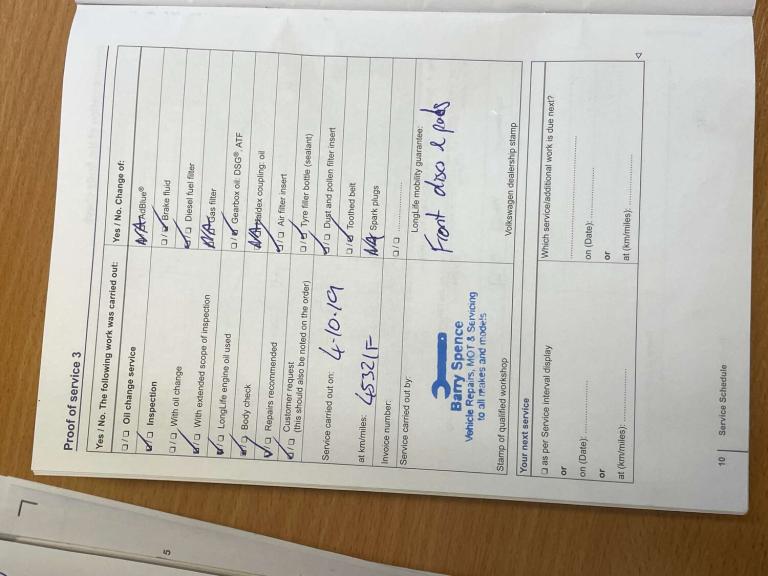 Proof of service 3
Yes / No. The following work was carried out:
❑ / ❑ Oil change service
❑ / ❑ Inspection
❑ / ❑ With oil change
❑ / ❑ With extended scope of inspection
❑ / ❑ LongLife engine oil used
❑ / ❑ Body check
❑ / ❑ Repairs recommended
❑ / ❑ Customer request
(this should also be noted on the order)
Service carried out on: 4-10-19
at km/miles:
Invoice number:
Service carried out by:
Barry Spence
Vehicle Repairs, MOT & Servicing
to all makes and models
Stamp of qualified workshop
Yes / No. Change of:
NA AdBlue®
❑ / ❑ Brake fluid
❑ / ❑ Diesel fuel filter
NA Gas filter
❑ / ❑ Gearbox oil: DSG®, ATF
NA Haldex coupling: oil
❑ / ❑ Air filter insert
❑ / ❑ Tyre filler bottle (sealant)
❑ / ❑ Dust and pollen filter insert
❑ / ❑ Toothed belt
NA Spark plugs
❑ / ❑ ....................
LongLife mobility guarantee:
Front disc & pads
Volkswagen dealership stamp
Your next service
❑ as per Service interval display
or
on (Date): ....................
or
at (km/miles): ....................
Which service/additional work is due next?
....................
on (Date): ....................
or
at (km/miles): ....................
10 | Service Schedule
5